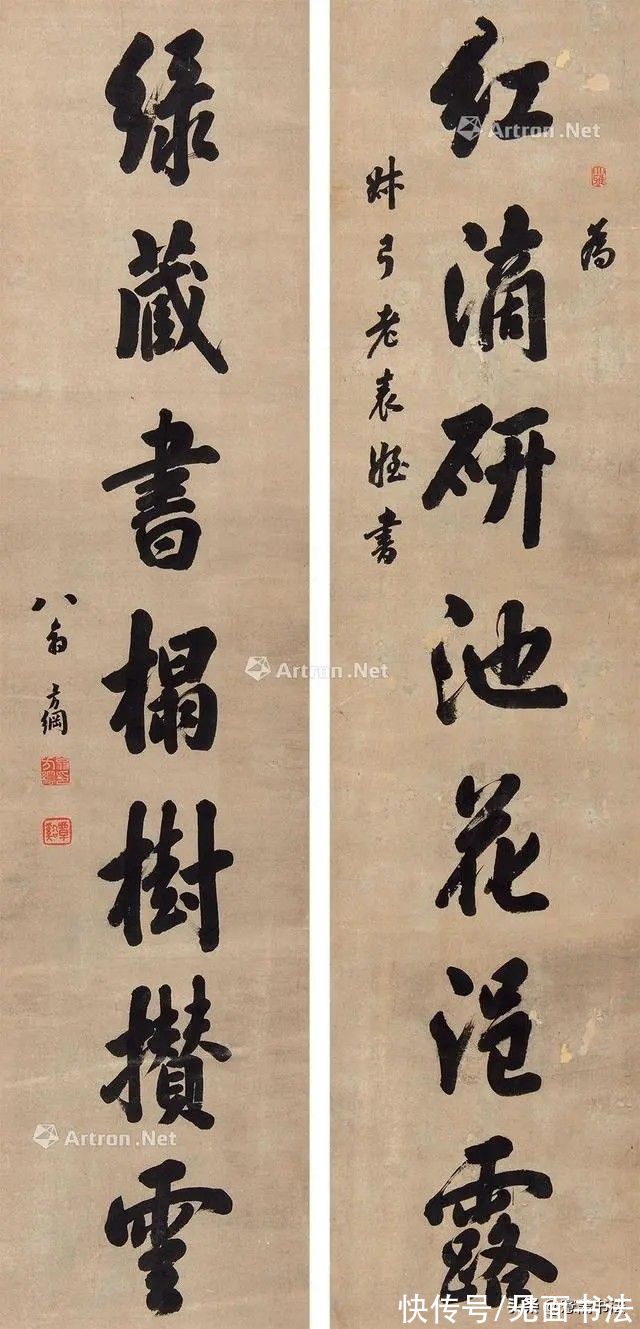 紅滴研池花浥露
為
叔弓老表姪書
綠藏書榻樹攢雲
八翁方綱
覃谿
Artron.Net
Artron.Net
Artron.Net
快传号/见面书法